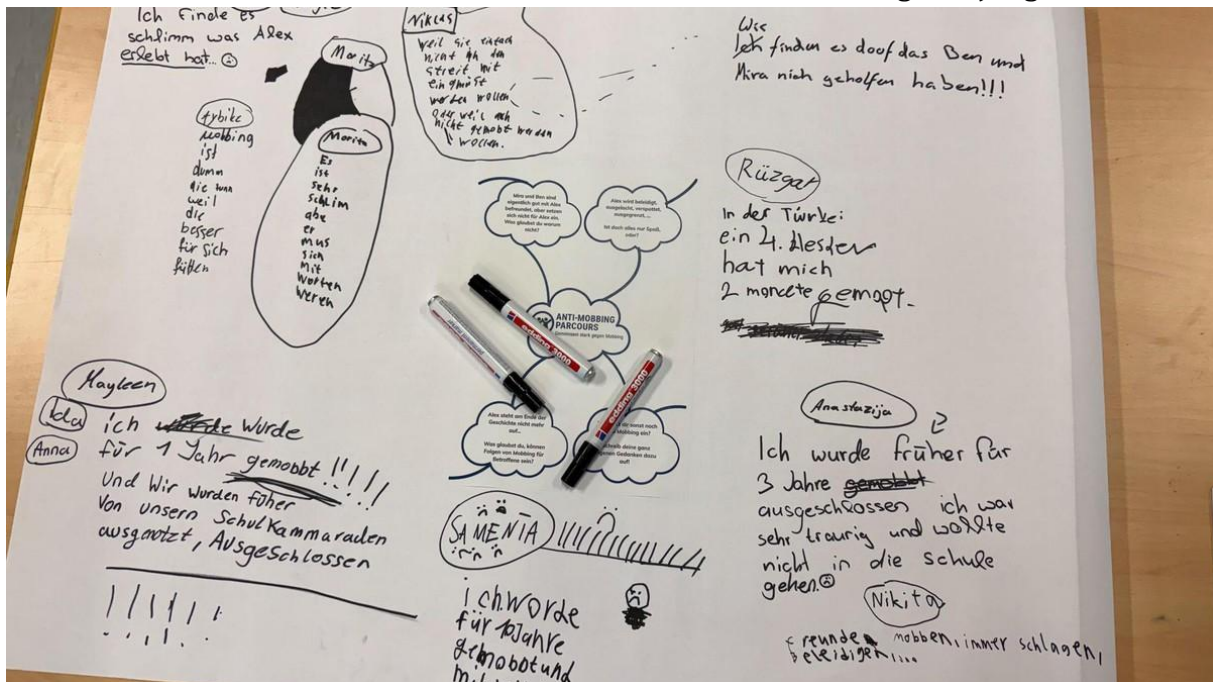 Ich finde es
schlimm was Alex
erlebt hat...
Moritz
tybike
Mobbing
ist
dumm
die tunn
weil
die
besser
für sich
fühlen
Moritz
Es
ist
sehr
schlim
abe
er
mus
sich
mit
worten
weren
Niklas
weil sie einfach
nicht in den
streit mit
ein gmist
werden wollen
oder weil sie
nicht gemobt werden
wollen.
Wir
finden es doof das Ben und
Mira nich geholfen haben!!!
Mira und Ben sind
eigentlich gut mit Alex
befreundet, aber setzen
sich nicht für Alex ein.
Was glaubst du warum
nicht?
Alex wird beleidigt,
ausgelacht, verspottet,
ausgegrenzt,...
Ist doch alles nur Spaß,
oder?
ANTI-MOBBING
PARCOURS
Gemeinsam stark gegen Mobbing
edding 3000
edding 3000
Alex steht am Ende der
Geschichte nicht mehr
auf...
Was glaubst du, können
Folgen von Mobbing für
Betroffene sein?
dir sonst noch
Mobbing ein?
deine ganz
Gedanken dazu
auf!
Rüzgar
In der Türkei
ein 4.
hat mich
2 monate gemopt.
Mayleen
Ida
Anna
ich wurde
für 1 Jahr gemobbt!!!!!
Und Wir wurden füher
von unsern Schulkammaraden
ausgenotzt, Ausgeschlossen
SAMENIA
ich worde
für 10 Jahre
gemobbt und
Anastazija
Ich wurde früher für
3 Jahre gemobbt
ausgeschlossen ich war
sehr traurig und wollte
nicht in die schule
gehen.
Nikita
freunde mobben, immer schlagen,
beleidigen,...